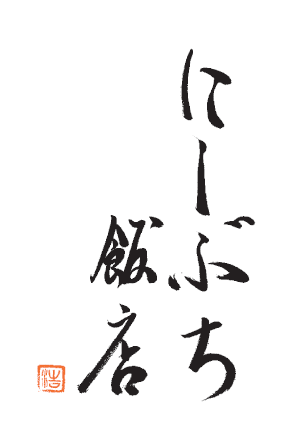 にしぶち
飯店